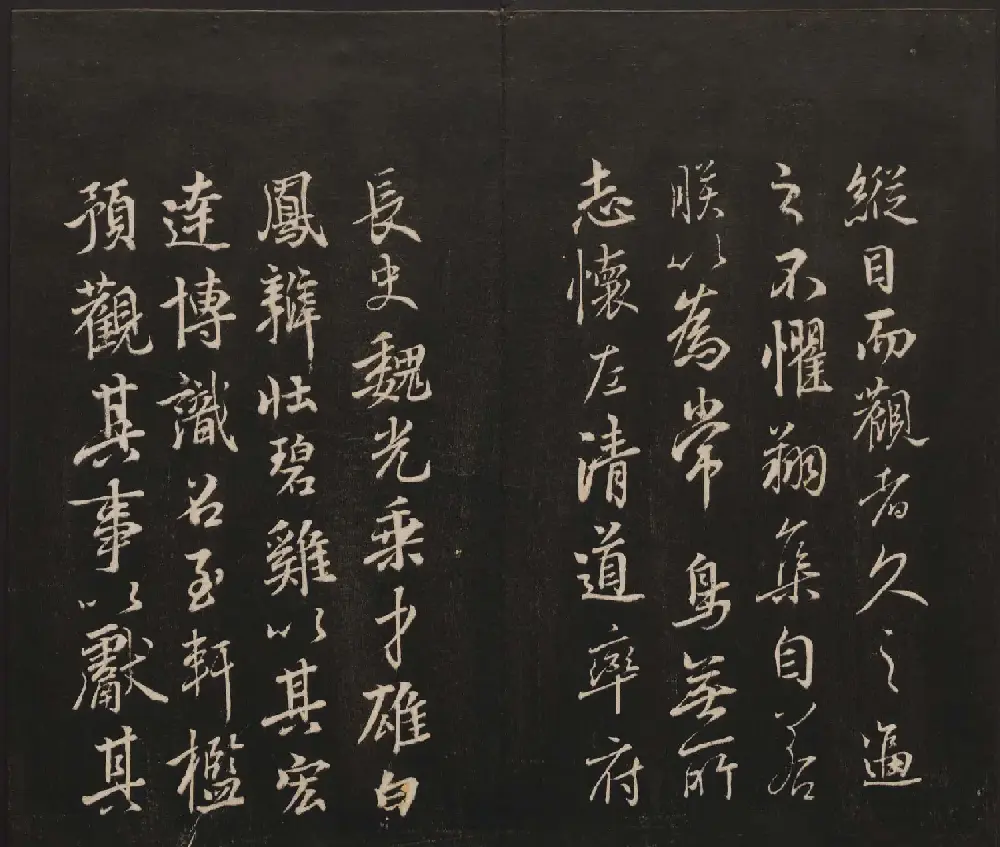 縱目而觀者久之逼
之不懼翔集自若
朕以為常鳥無所
志懷左清道率府
長史魏光乘才雄白
鳳辯壯碧雞以其宏
達博識召至軒檻
預觀其事以獻其